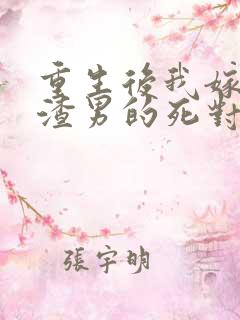 重生後我嫁
渣男的死對
張宇明